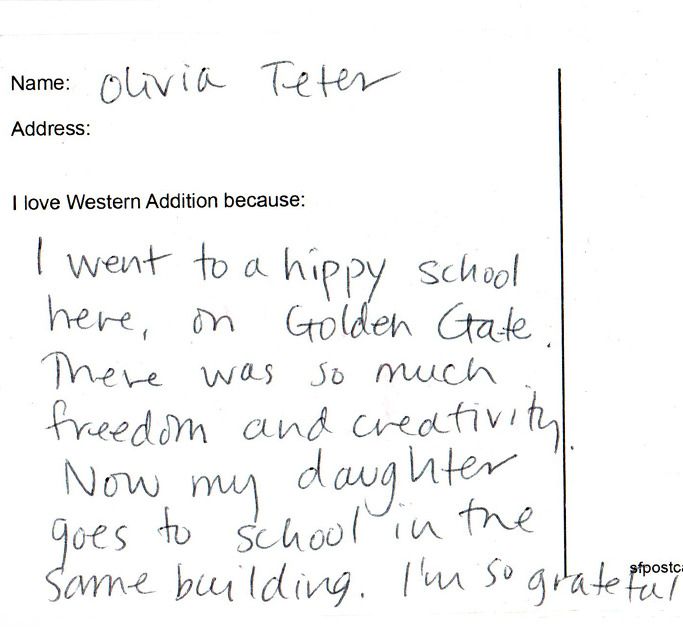 Name: Olivia Teter
Address:
I love Western Addition because:
I went to a hippy school
here, on Golden Gate.
There was so much
freedom and creativity.
Now my daughter
goes to school in the
same building. I'm so grateful
sfpostca